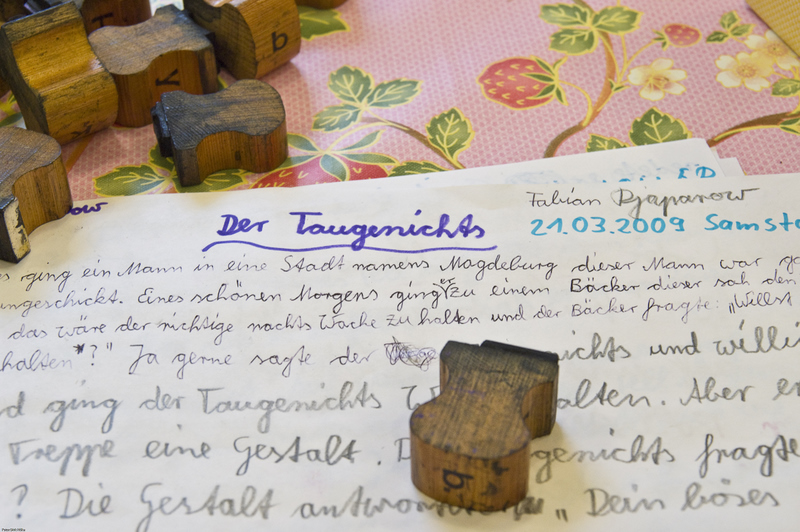 Fabian Djaparow
Der Taugenichts
21.03.2009 Samsta
s ging ein Mann in eine Stadt namens Magdeburg dieser Mann war
ungeschickt. Eines schönen Morgens ging er zu einem Bäcker dieser sah den
das wäre der richtige nachts Wache zu halten und der Bäcker fragte: „Willst
halten"?" Ja gerne sagte der ichts und willi
d ging der Taugenichts alten. Aber er
Treppe eine Gestalt. genichts fragte
? Die Gestalt „Dein böses